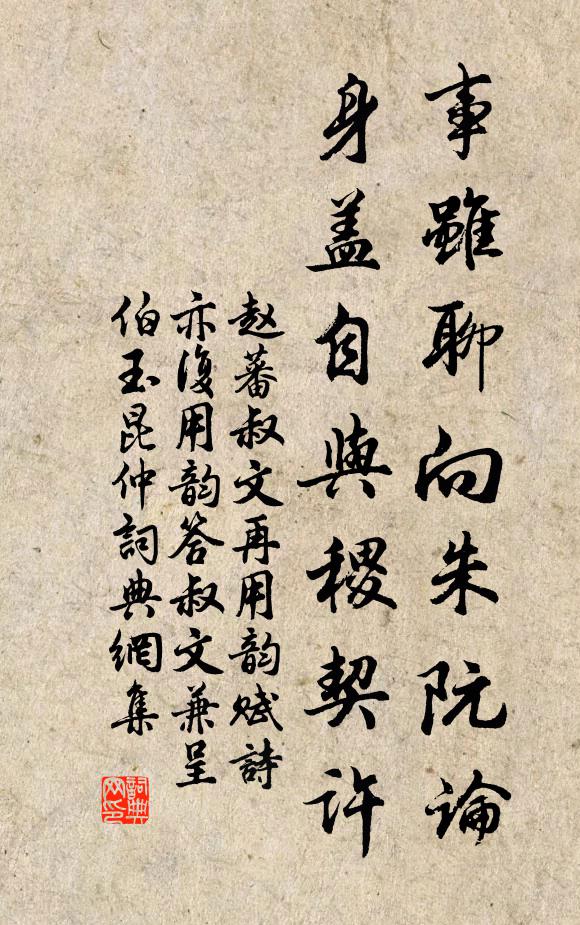 事雖聊向朱阮論
身盖自與稷契許
赵蕃叔文再用韵賦詩
亦復用韵答叔文兼呈
伯玉昆仲詞典網集
詞典
网印